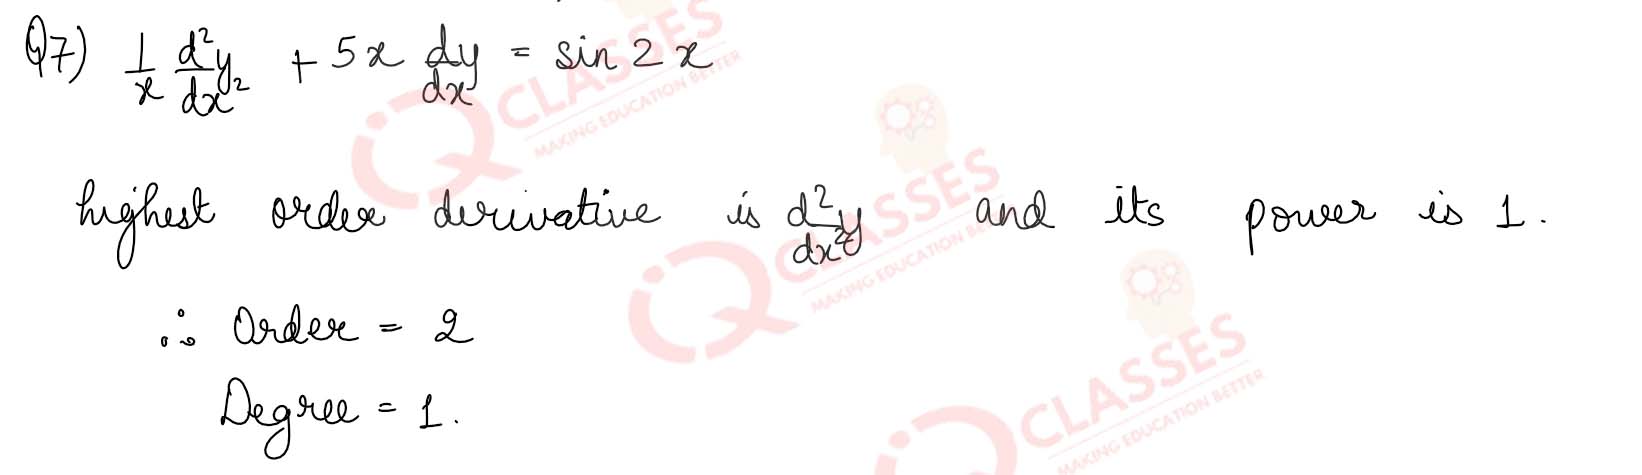 Q7) 1/x d²y/dx² + 5x dy/dx = sin 2x
highest order derivative is d²y/dx² and its power is 1.
∴ Order = 2
Degree = 1.
CLASSES
MAKING EDUCATION BETTER
CLASSES
MAKING EDUCATION BETTER
CLASSES
MAKING EDUCATION BETTER